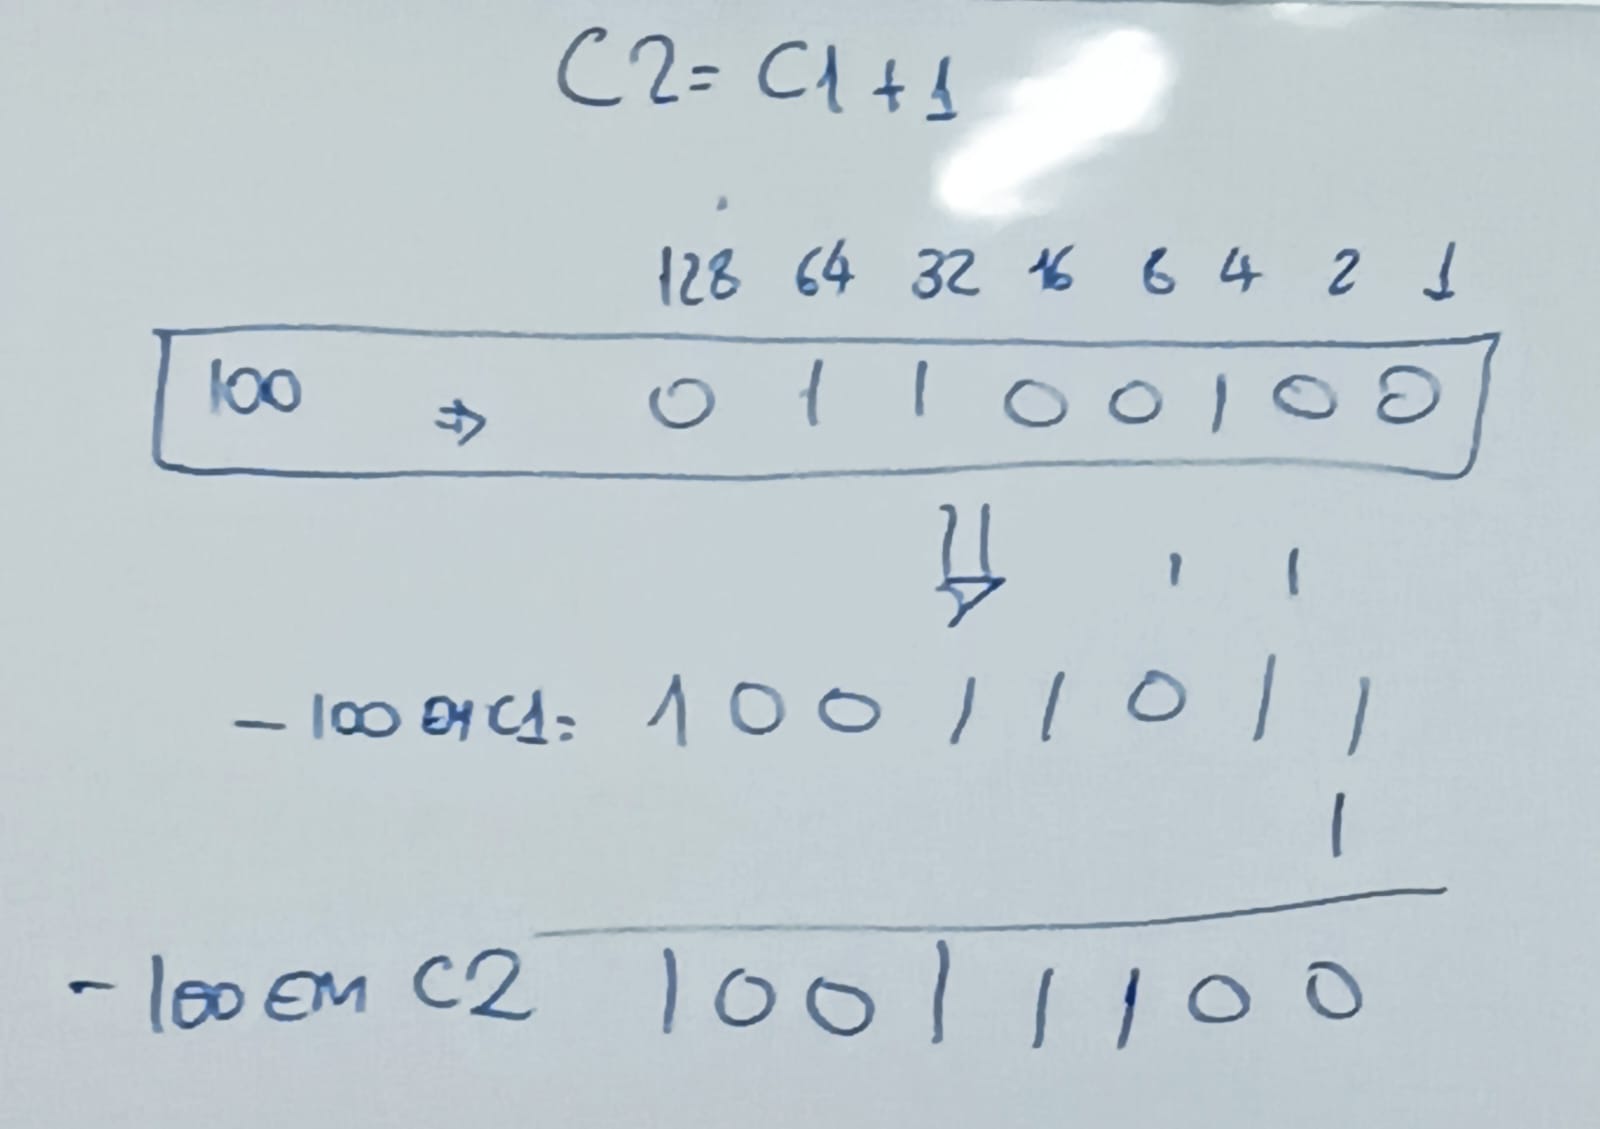 C2= C1+1
128 64 32 16 8 4 2 1
100 ⇒ 0 1 1 0 0 1 0 0
1 1
-100 EM C1: 1 0 0 1 1 0 1 1
1
-100 EM C2 1 0 0 1 1 1 0 0